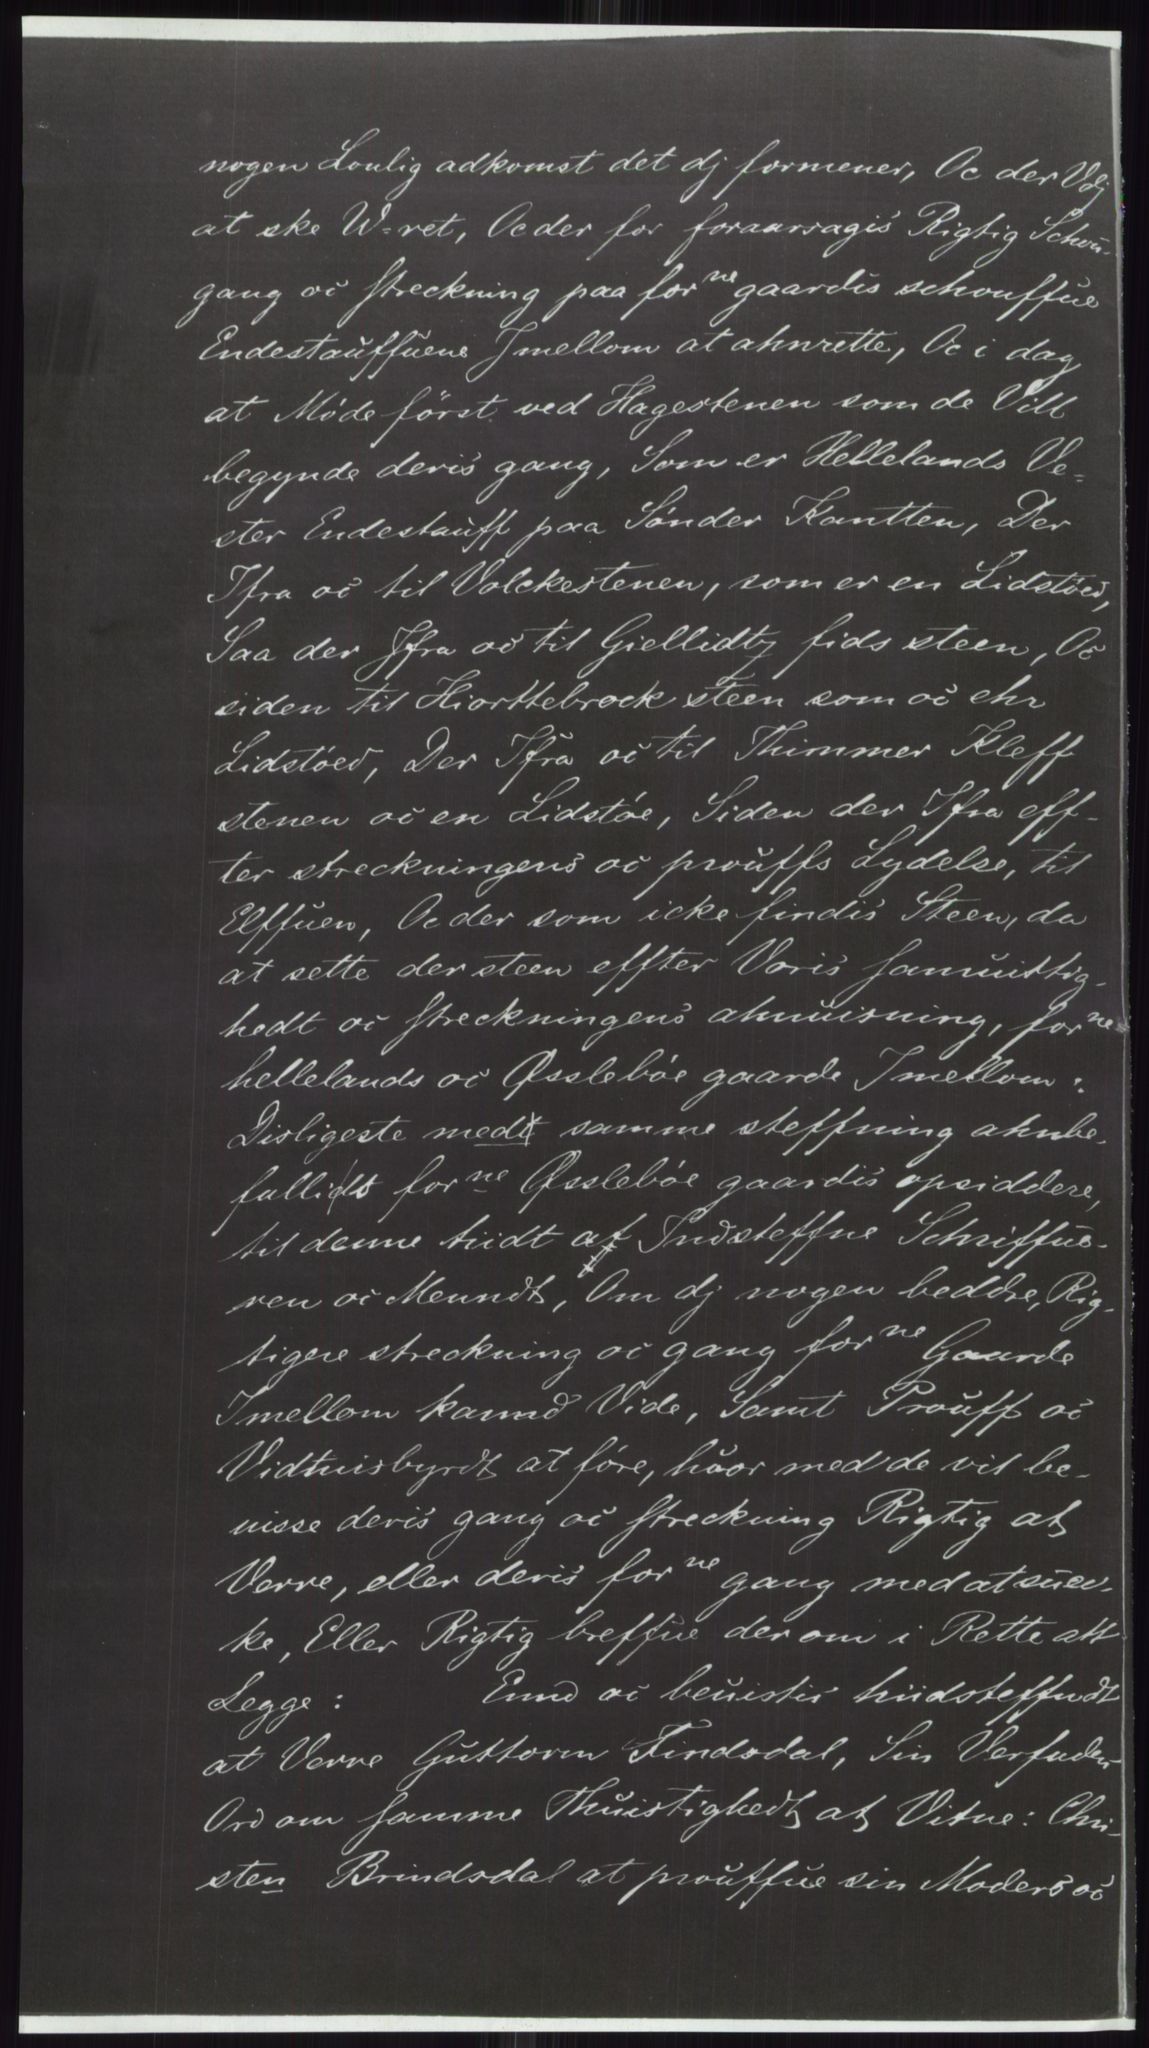 nogen Loulig adkomst det dj formener, Oc der Vdj
at ske W=ret, Oc der for foraarsagis Rigtig Schou-
gang oc streckning paa for ne gaardis schouffue
Endestauffuene Jmellom at ahnrette, Oc i dag
at Møde først ved Hagestenen som de Vill
begynde deris gang, Som er Hellelands Ve=
ster Endestauff paa Sønder Kantten, Der
Jfra oc til Volckestenen, som er en Lidstoed,
Saa der Jfra oc til Giellidtz fids steen, Oc
siden til Hiorttebrock steen som oc ehr
Lidstoed, Der Jfra oc til Thimmer Kleff
stenen oc en Lidstøe, Siden der Jfra eff-
ter streckningens oc prouffs Lydelse, til
Elffuen, Oc der som icke findis Steen, da
at sette der steen effter Voris samuittig-
hedt oc streckningens ahnuisning, for ne
hellelands oc Øsslebøe gaarde Jmellom:
Disligeste medt samme steffning ahnbe-
fallidt for ne Øsslebøe gaardis opsiddere,
til denne tiidt at Indsteffne Schriffue-
ren oc Menndt, Om dj nogen beddre, Rig-
tigere streckning oc gang for ne Gaarde
Jmellom kannd Vide, Samt Prouff oc
Vidtnisbyrdt at føre, huor med de vil be-
uisse deris gang oc streckning Rigtig at
Verre, eller deris for ne gang med at suec-
ke, Eller Rigtig breffue der om i Rette att
Legge: Ennd oc beuistis hiidsteffndt
at Verre Guttorm Findsdal, Sin Verfaders
Ord om samme Thuistighedt at Vitne: Chri-
sten Brindsdal at prouffue sin Moders oc